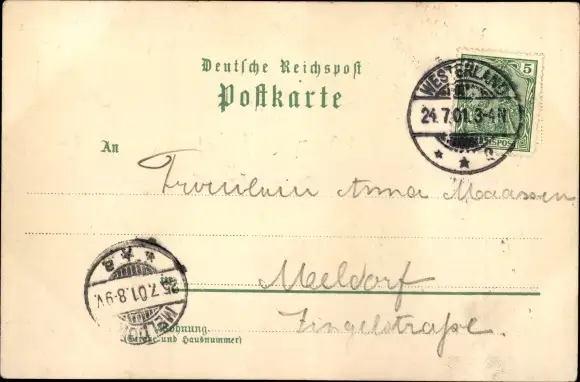 Deutsche Reichspost
Postkarte
5
WESTERLAND
24.7.01.3-4N
An
Fräulein Anna Maassen
25.7.01.8-9V.
Meldorf
Wohnung
(Straße und Hausnummer)
Zingelstraße.